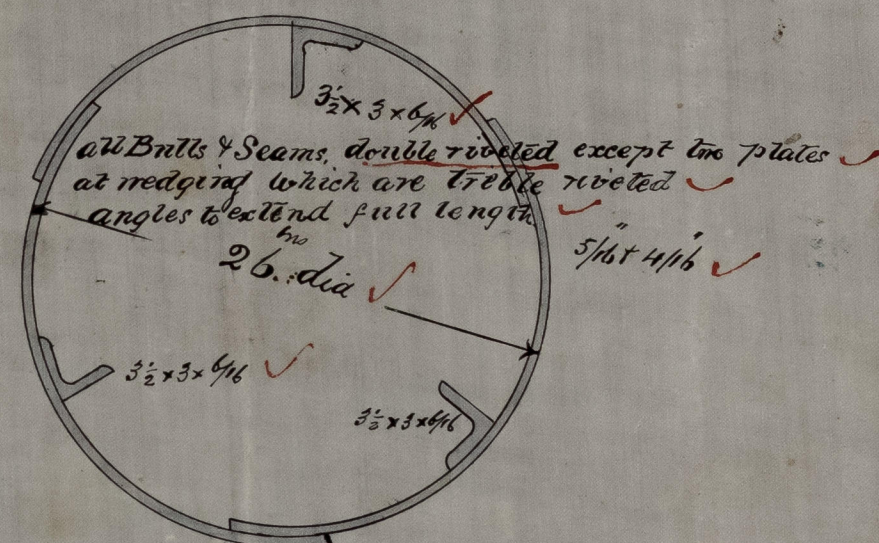 3½ × 3 × 6/16
all Butts & Seams, double riveted except two plates
at wedging which are treble riveted
angles to extend full length
5/16" + 4/16"
26 ins dia
3½ × 3 × 6/16
3½ × 3 × 6/16